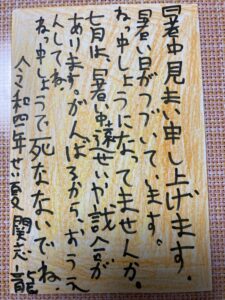 暑中見まい申し上げます。
暑い日がつづいています。
ね。申しょうになってませんか。
七月は、暑い中遠せいや試合が
あります。がんばるから、おうえ
んしてね。
ね。申しょうで死なないでね。
令和四年せい夏 關 龍